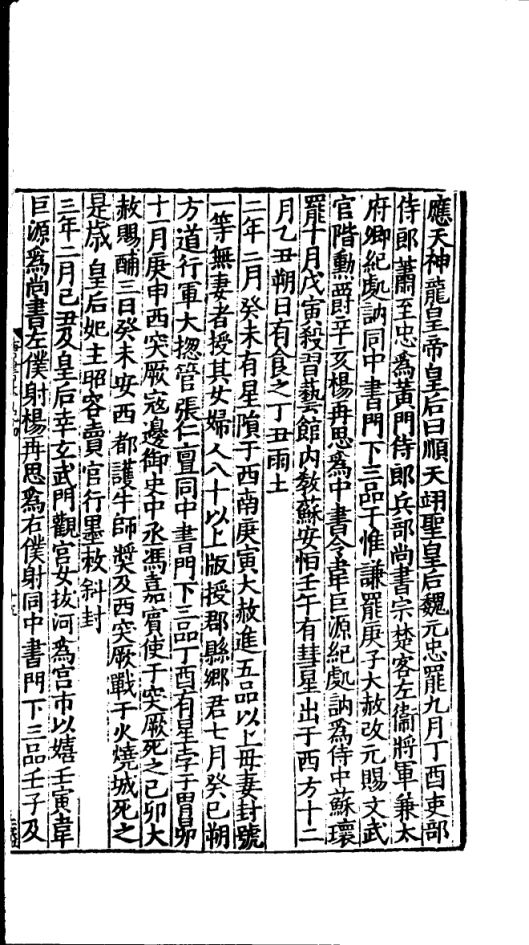 應天神龍皇帝皇后曰順天翊聖皇后魏元忠罷九月丁酉吏部
侍郎蕭至忠爲黃門侍郎兵部尚書宗楚客左衞將軍兼太
府卿紀處訥同中書門下三品于惟謙罷庚子大赦改元賜文武
官階勳爵辛亥楊再思爲中書令韋巨源紀處訥爲侍中蘇瓌
罷十月戊寅殺習藝館內教蘇安恒壬午有彗星出于西方十二
月乙丑朔日有食之丁丑雨土
二年二月癸未有星隕于西南庚寅大赦進五品以上母妻封號
一等無妻者授其女婦人八十以上版授郡縣鄉君七月癸巳朔
方道行軍大揔管張仁亶同中書門下三品丁酉有星孛于胃昴
十一月庚申西突厥寇邊御史中丞馮嘉賓使于突厥死之己卯大
赦賜酺三日癸未安西都護牛師奬及西突厥戰于火燒城死之
是歲皇后妃主昭容賣官行墨敕斜封
三年二月己丑及皇后幸玄武門觀宮女拔河爲宮市以嬉壬寅韋
巨源爲尚書左僕射楊再思爲右僕射同中書門下三品壬子及